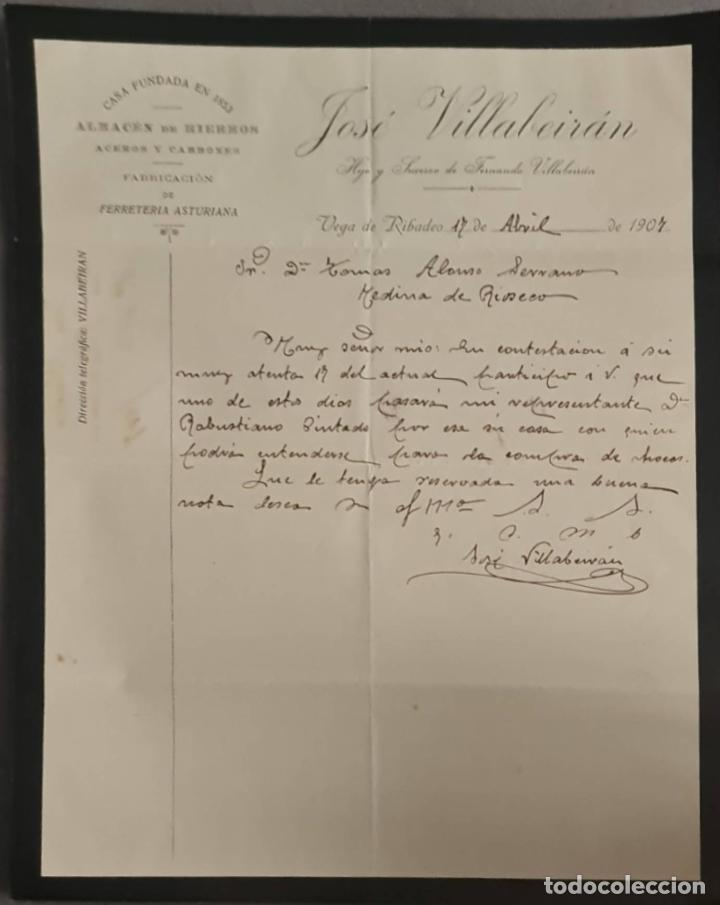 CASA FUNDADA EN 1853
ALMACÉN DE HIERROS
ACEROS Y CARBONES
FABRICACIÓN
DE
FERRETERIA ASTURIANA
Dirección telegráfica: VILLABEIRAN
José Villabeirán
Hijo y Sucesor de Fernando Villabeirán
Vega de Ribadeo 17 de Abril de 1907
Sr. Dn Tomas Alonso Serrano
Medina de Rioseco
Muy señor mio: En contestacion á su
muy atenta 17 del actual participo á V. que
uno de estos dias pasará mi representante Dn
Robustiano Pintado por esa su casa con quien
podrá entenderse para la compra de
Que le tenga reservada una buena
nota desea su affmo S. S.
q. s. m b
José Villabeirán
todocoleccion
todocoleccion.net